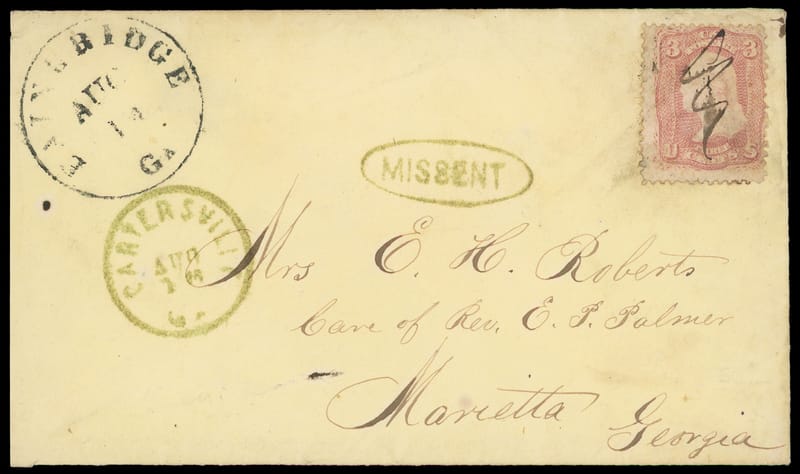 BAINBRIDGE
AUG
14
GA
3 3
U S
MISSENT
CARTERSVILLE
AUG
Ga
Mrs E. H. Roberts
Care of Rev. E. P. Palmer
Marietta
Georgia